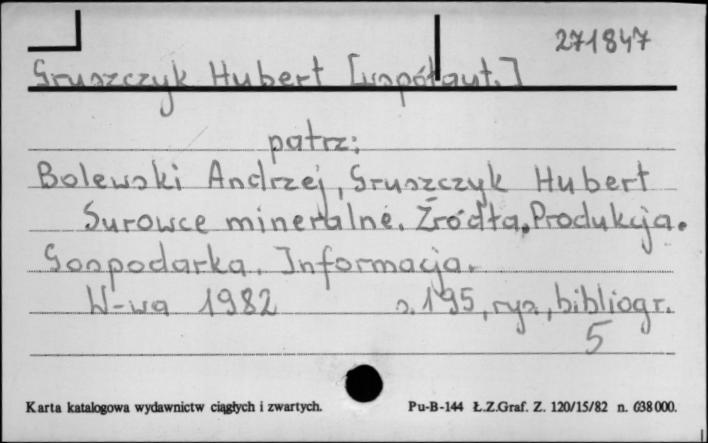 271847
Gruszczyk Hubert [współaut.]
patrz:
Bolewski Andrzej, Gruszczyk Hubert
Surowce mineralne. Źródła. Produkcja.
Gospodarka. Informacja.
W-wa 1982 s. 195, rys., bibliogr.
5
Karta katalogowa wydawnictw ciągłych i zwartych. Pu-B-144 Ł.Z.Graf. Z. 120/15/82 n. 638000.